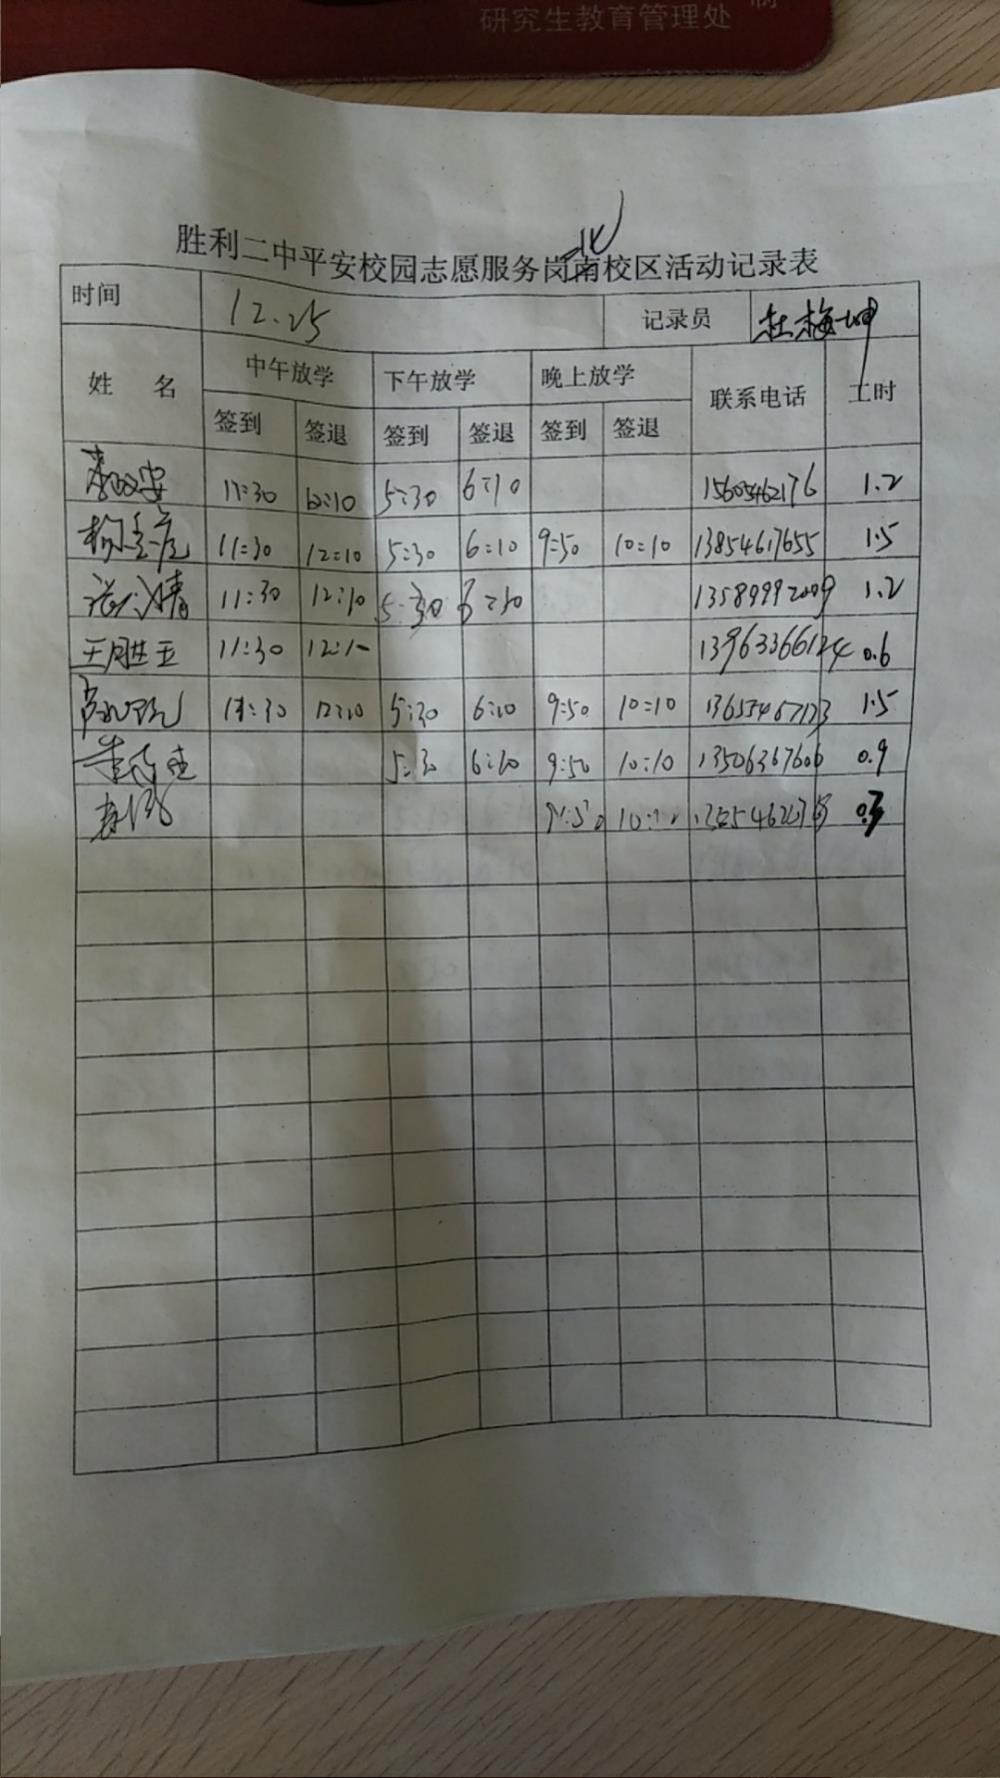 研究生教育管理处 制
北
胜利二中平安校园志愿服务岗南校区活动记录表
时间 12.25 记录员 杜梅坤
姓 名 中午放学 下午放学 晚上放学 联系电话 工时
签到 签退 签到 签退 签到 签退
11:30 12:10 5:30 6:10 15605462176 1.2
11:30 12:10 5:30 6:10 9:50 10:10 13854617655 1.5
11:30 12:10 5:30 6:30 13589992009 1.2
王胜玉 11:30 12:1 13963366124 0.6
11:30 12:10 5:30 6:10 9:50 10:10 13655467123 1.5
5:30 6:10 9:50 10:10 13506367606 0.9
9:50 0.3